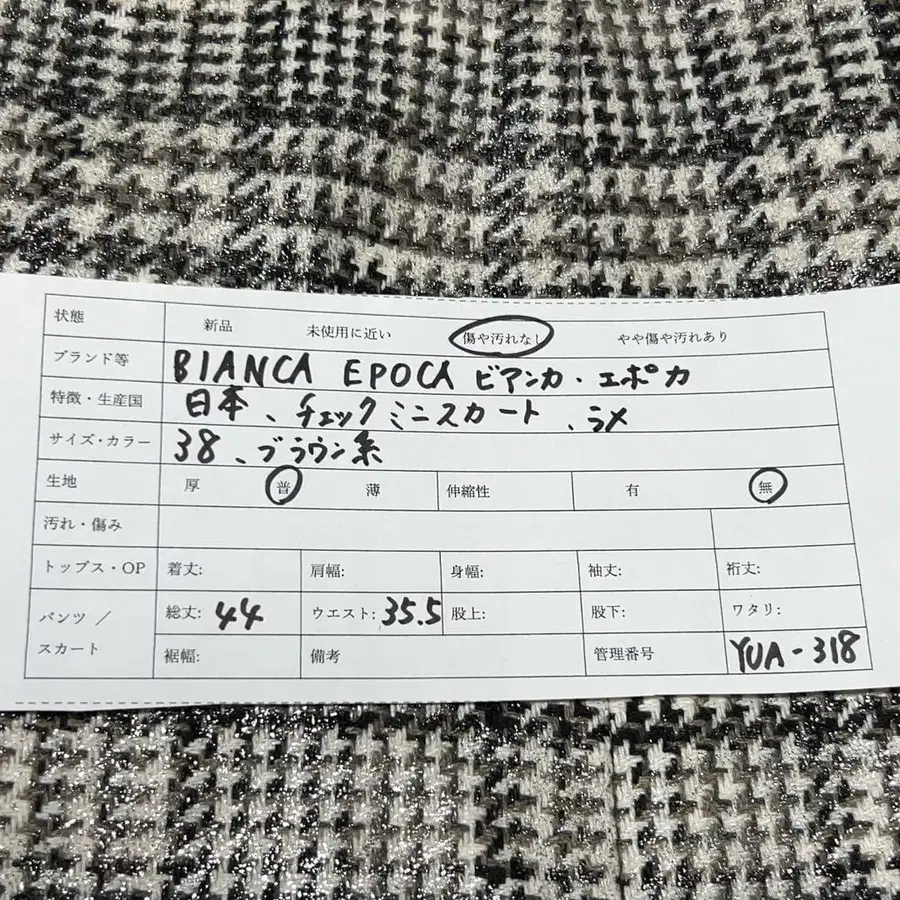 状態 新品 未使用に近い 傷や汚れなし やや傷や汚れあり
ブランド等 BIANCA EPOCA ビアンカ・エポカ
特徴・生産国 日本、チェックミニスカート、ラメ
サイズ・カラー 38、ブラウン系
生地 厚 普 薄 伸縮性 有 無
汚れ・傷み
トップス・OP 着丈: 肩幅: 身幅: 袖丈: 裄丈:
パンツ / スカート 総丈: 44 ウエスト: 35.5 股上: 股下: ワタリ:
裾幅: 備考 管理番号 YUA-318